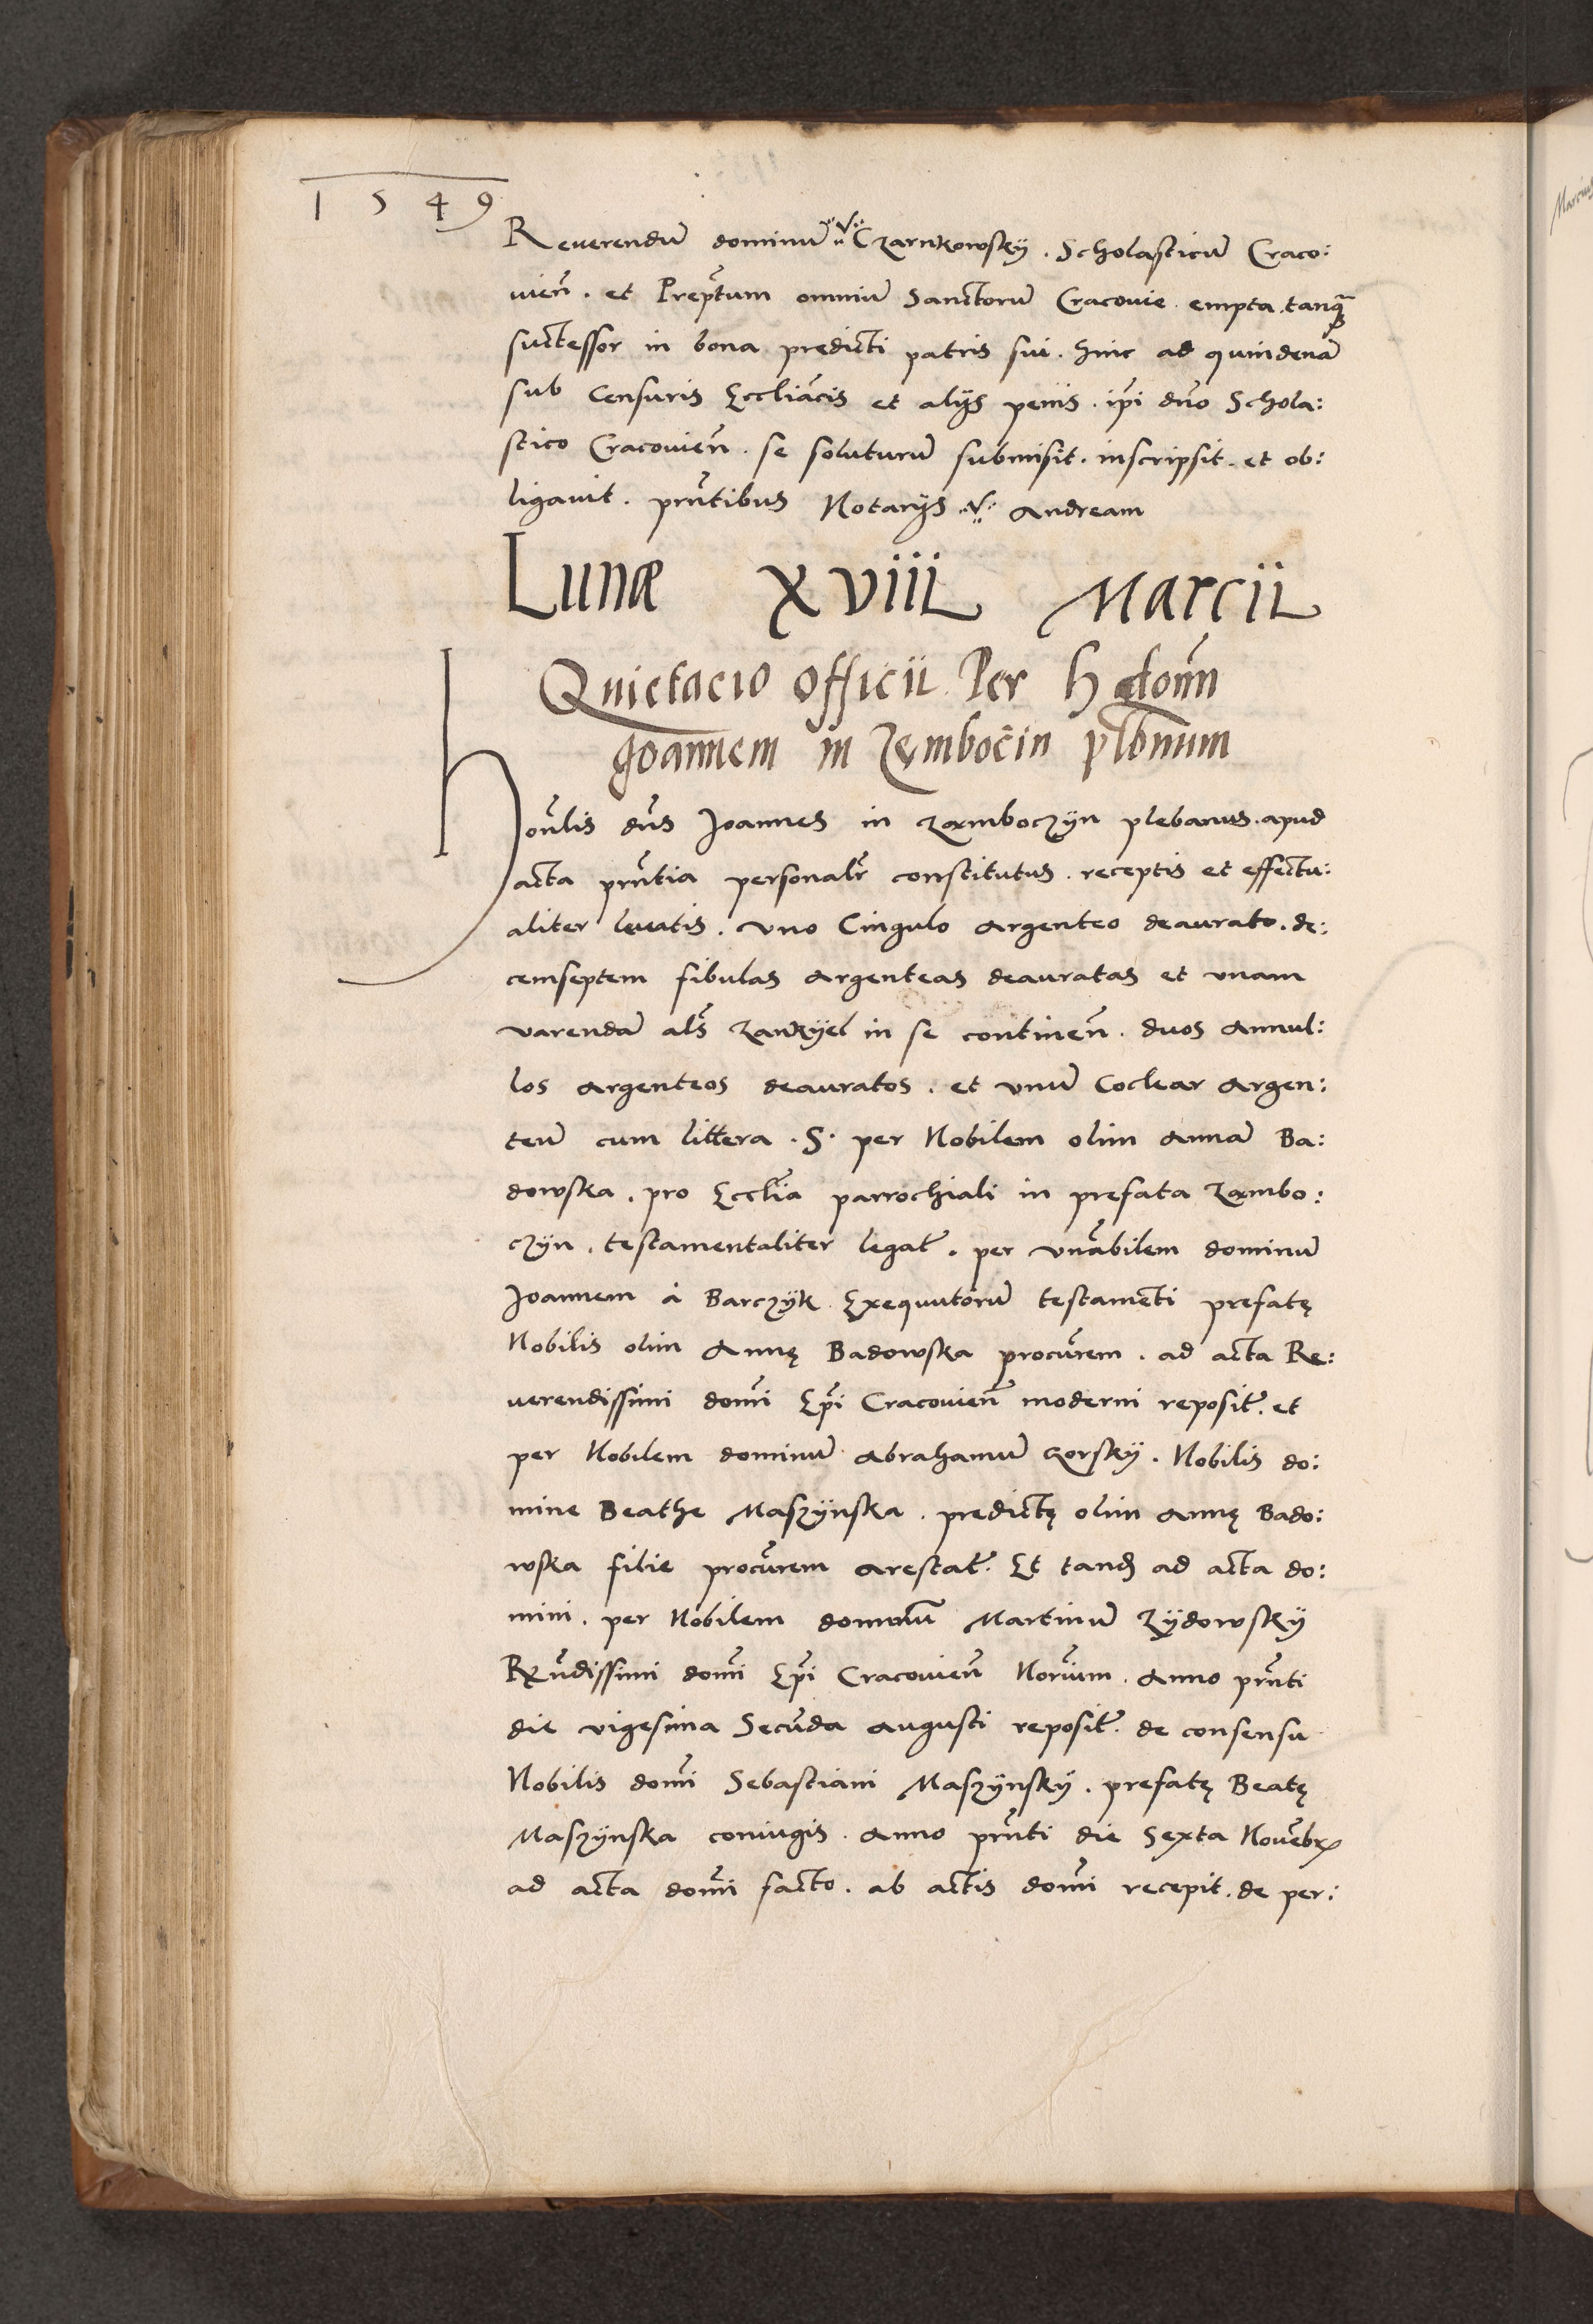 1549
Reverendũ dominũ Czarnkowskÿ . Scholasticũ Craco:
vieñ . et Prep̃tum omniũ Sanctorũ Cracovie . empta . tanq̃
successor in bona predicti patris sui . hinc ad quindenã
sub Censuris Eccliãcis et alÿs penis . ip̃i dñο Schola:
stico Cracovieñ . se soluturũ submisit . inscripsit . et ob:
ligavit . prñtibus Notarÿs . Andream
Lunæ XVIII Marcii
Quietacio officii Per H doñm
Joannem in Zęmbocin pl̃bnum
Hoñlis dñs Joannes in Zæmboczÿn plebanus . apud
acta prñtia personalr̃ constitutus . receptis et effectu:
aliter levatis . vno Cingulo argenteo deaurato . de:
cemseptem fibulas argenteas deauratas et vnam
varendã als̃ zankÿel in se contineñ . duos annul:
los argenteos deauratos . et vnũ Coclear argen:
teũ cum littera . S . per Nobilem olim annã Ba:
dowska . pro Eccl̃ia parrochiali in prefata Zæmbo:
czÿn . testamentaliter legat̃ . per vnãbilem dominũ
Joannem à Barczÿk Exequutorũ testamẽti prefatę
Nobilis olim Annę Badowska procũrem . ad acta Re:
verendissimi domĩ Ep̃i Cracovieñ moderni reposit̃ . et
per Nobilem dominũ Abrahamũ Gorskÿ . Nobilis do:
mine Beathe Maszÿnska . predictę olim annę Bado:
wska filie procũrem arestat̃ . Et tandẽ ad acta do:
mini . per Nobilem dominũ Martinũ Zÿdowskÿ
Rẽndissimi domĩ Ep̃i Cracovieñ Norĩum . Anno prñti
die vigesima Secũda augusti reposit̃ . de consensu
Nobilis domĩ Sebastiani Maszÿnskÿ . prefatę Beatę
Maszÿnska coniugis . anno prñti die Sexta Novẽbr̃
ad acta domĩ facto . ab actis domĩ recepit . de per: